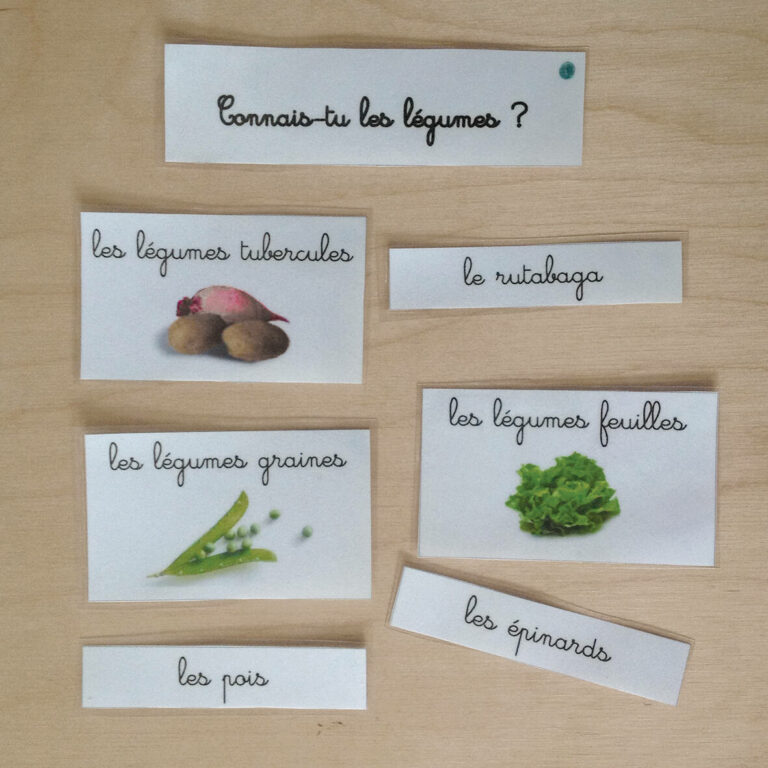 Connais-tu les légumes ?
les légumes tubercules
le rutabaga
les légumes feuilles
les légumes graines
les épinards
les pois